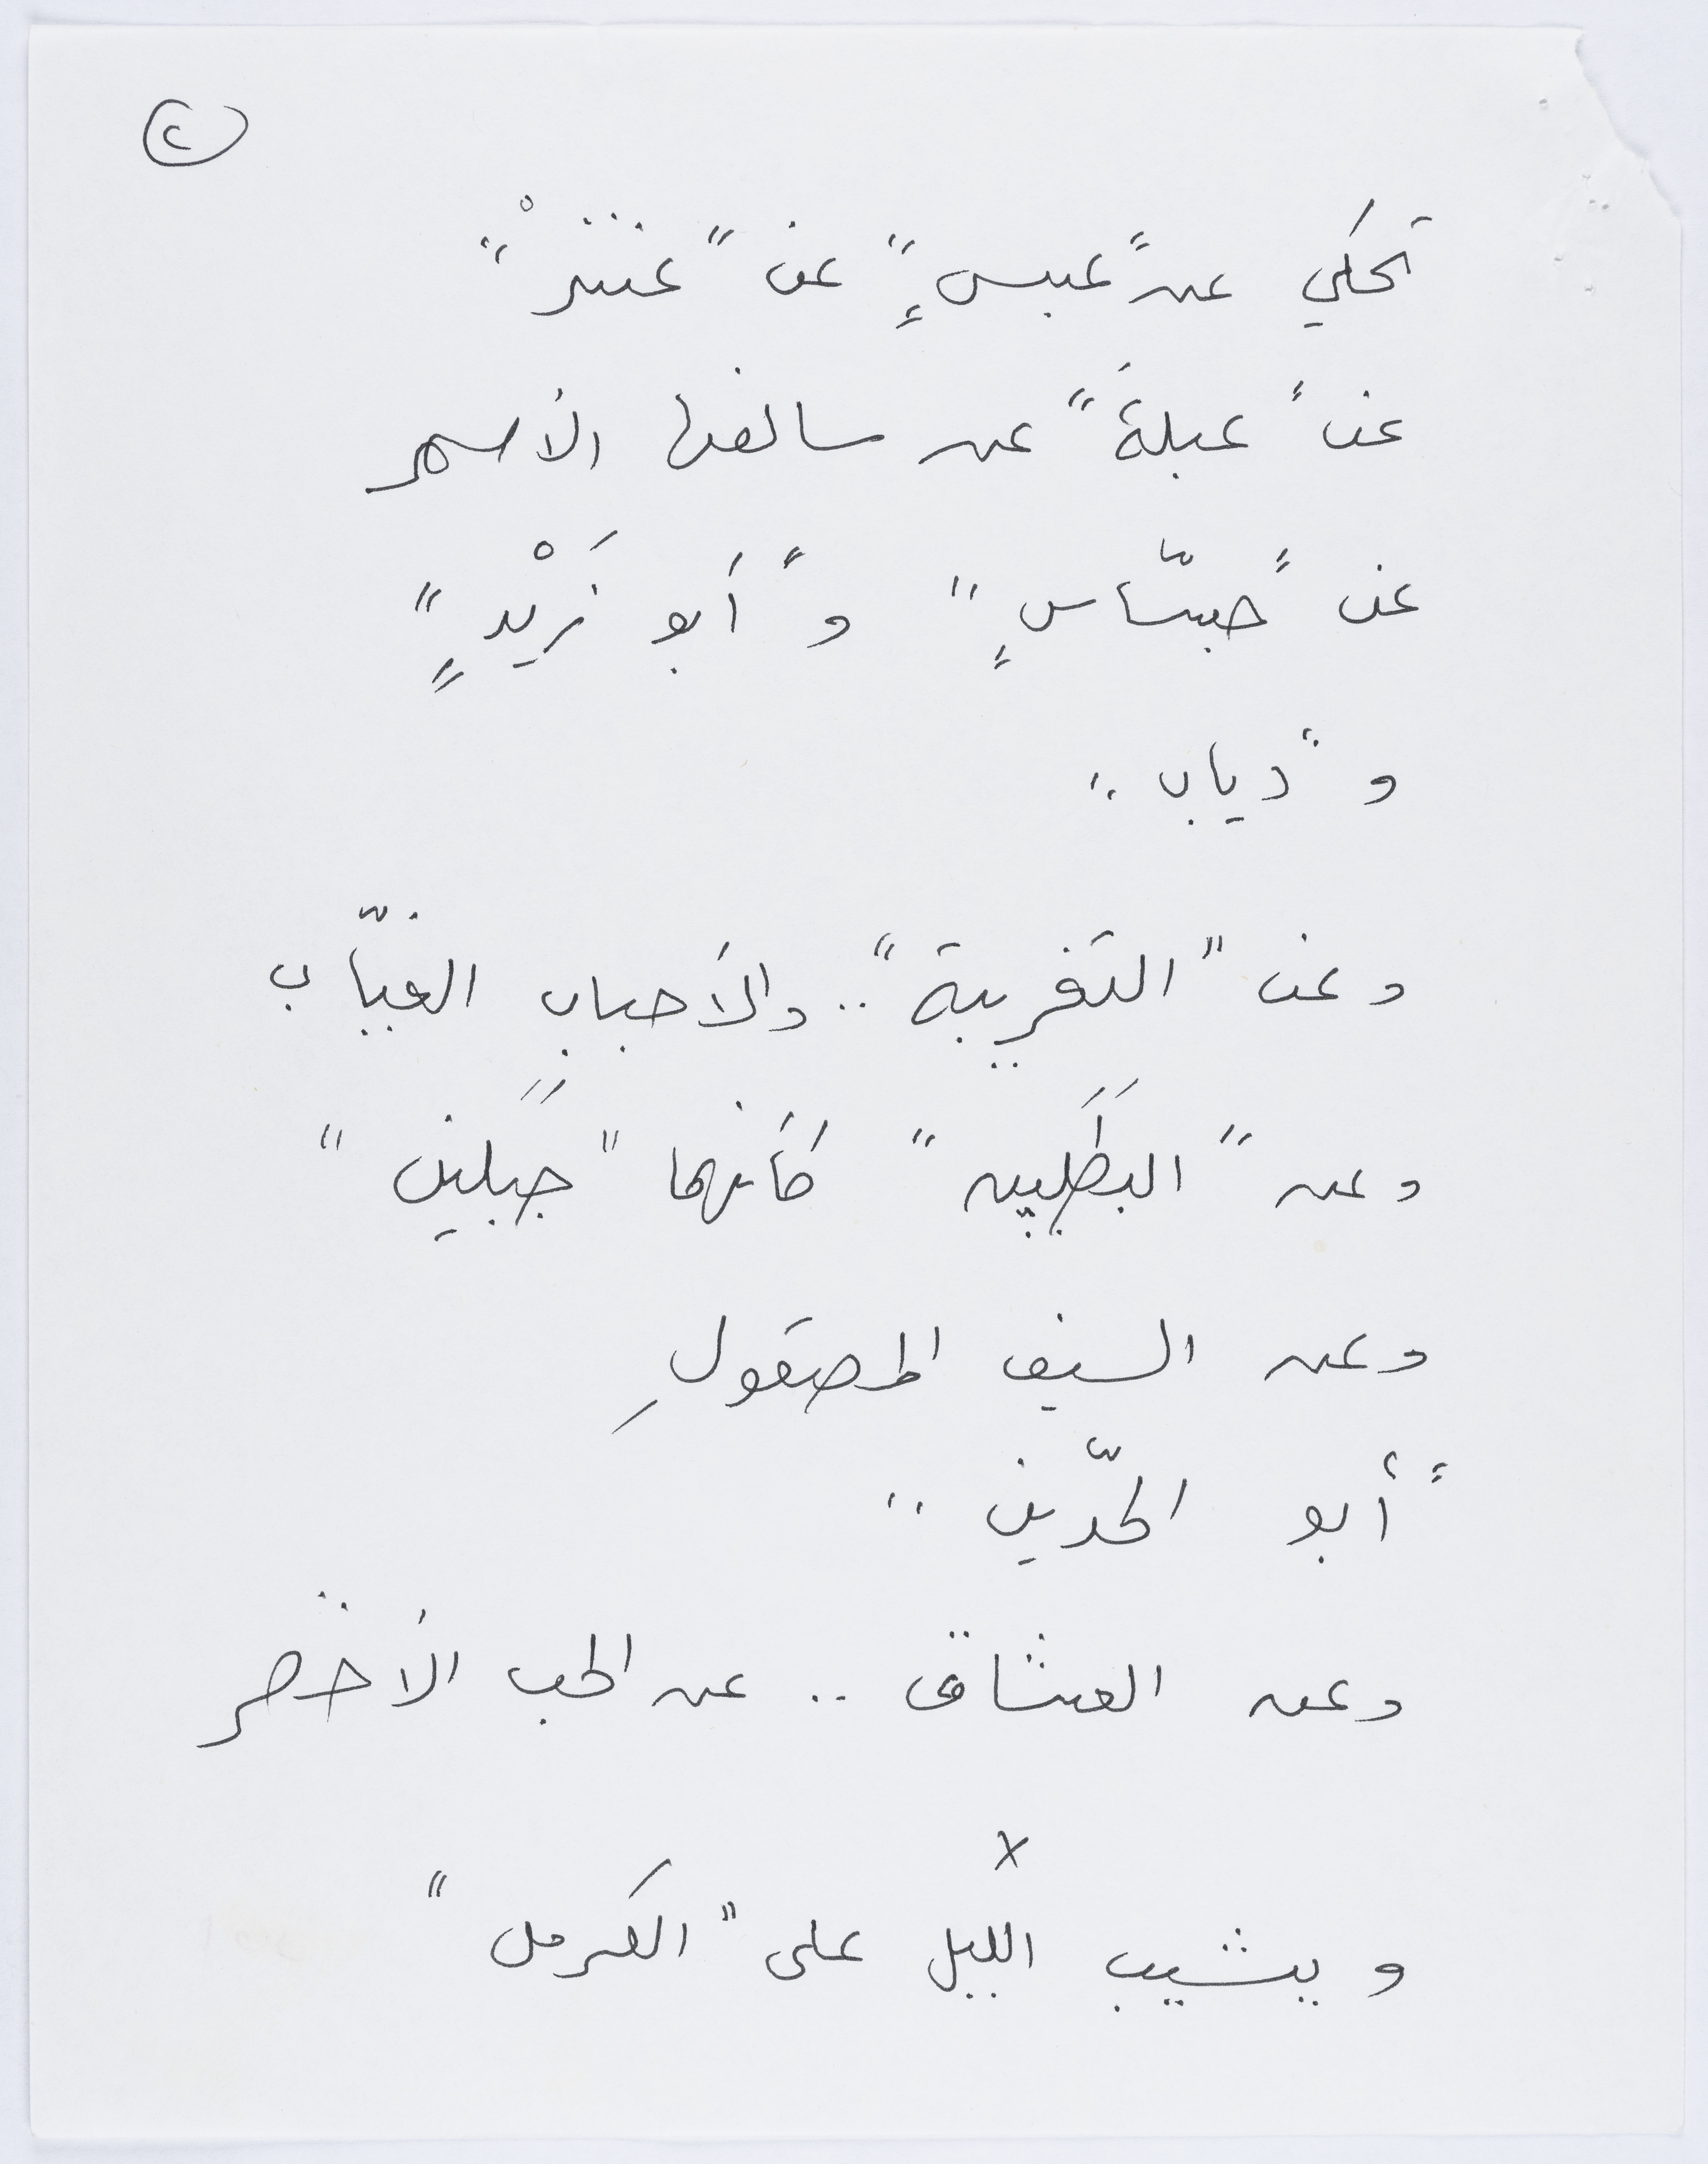 ٢
تحكي عن "عبسٍ" عن "عنترْ"
عن "عبلةَ" عن سالفها الأسمر
عن "جسّاسٍ" و "أبو زَيْدٍ"
و "دياب"
وعن "التغريبة".. والأحبابِ الغيّاب
وعن "البطَلَين" كأنهما "جَبَلين"
وعن السيف المصقولِ
"أبو الحدّين"
وعن العشاق .. عن الحب الأخضر
x
و يشيب الليل على "الكرمل"